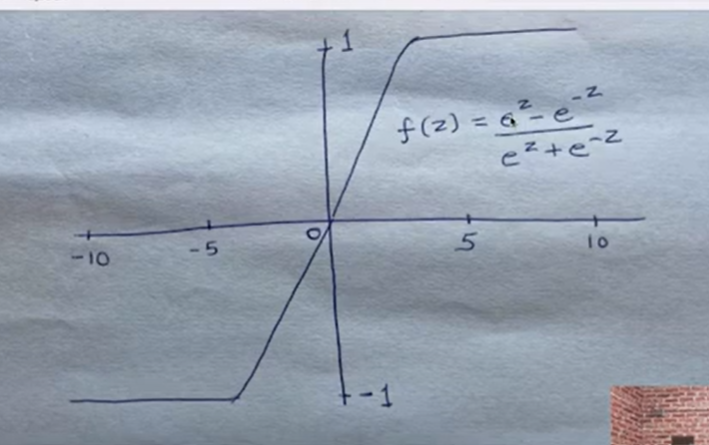 1
f(z) = e^z - e^-z / e^z + e^-z
-10 -5 0 5 10
-1